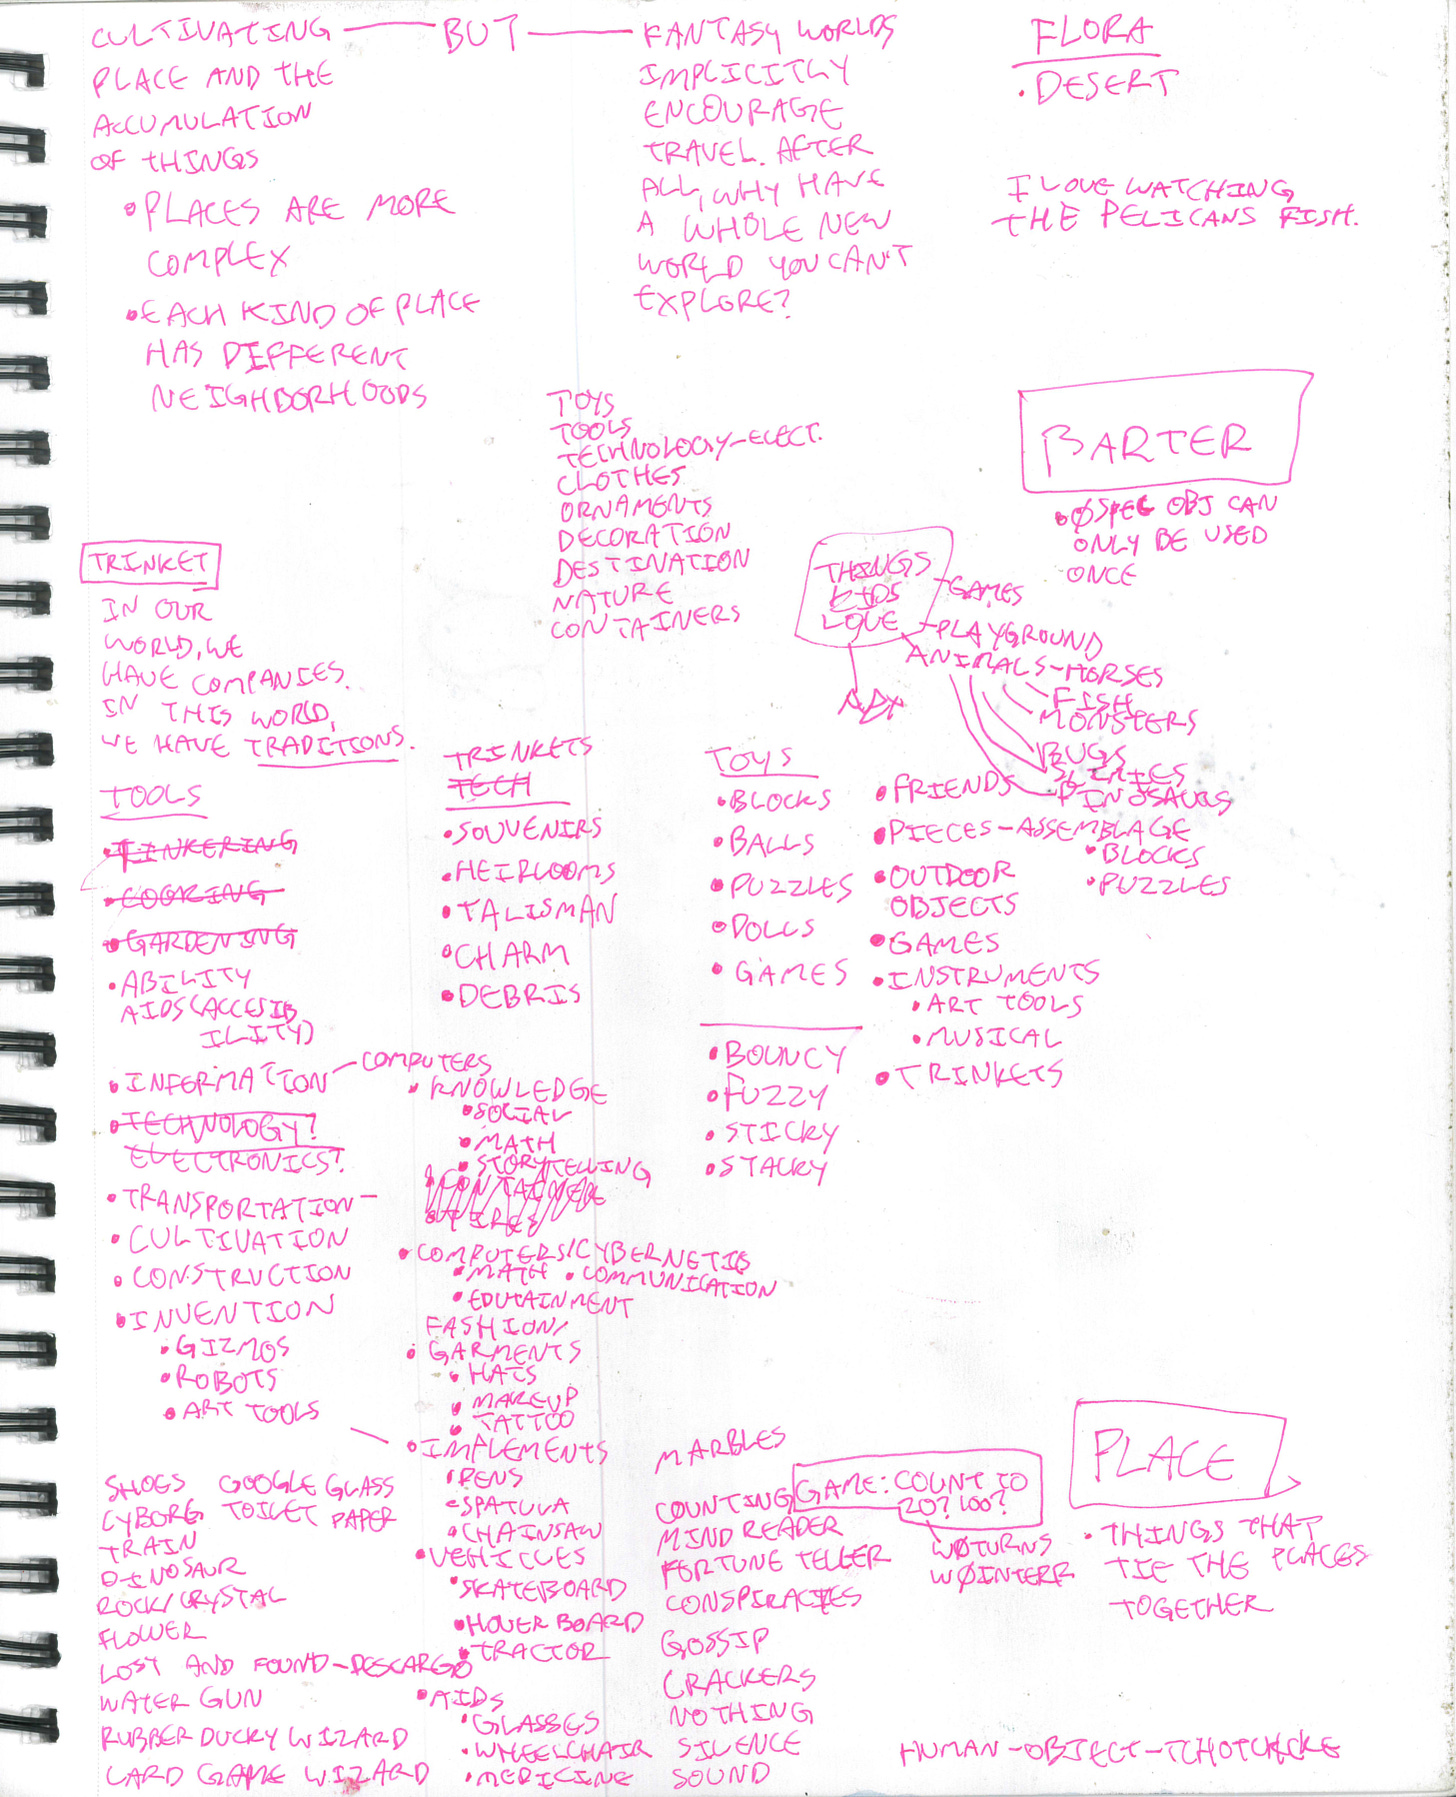 CULTIVATING
PLACE AND THE
ACCUMULATION
OF THINGS
• PLACES ARE MORE
COMPLEX
• EACH KIND OF PLACE
HAS DIFFERENT
NEIGHBORHOODS
BUT
FANTASY WORLDS
IMPLICITLY
ENCOURAGE
TRAVEL. AFTER
ALL, WHY HAVE
A WHOLE NEW
WORLD YOU CAN'T
EXPLORE?
FLORA
• DESERT
I LOVE WATCHING
THE PELICANS FISH.
TOYS
TOOLS
TECHNOLOGY-ELECT.
CLOTHES
ORNAMENTS
DECORATION
DESTINATION
NATURE
CONTAINERS
BARTER
• ØSPEC OBJ CAN
ONLY BE USED
ONCE
THINGS
KIDS
LOVE
-GAMES
-PLAYGROUND
ANIMALS-HORSES
FISH
MONSTERS
BUGS
DINOSAURS
TRINKET
IN OUR
WORLD, WE
HAVE COMPANIES.
IN THIS WORLD,
WE HAVE TRADITIONS.
TOOLS
• TINKERING
• COOKING
• GARDENING
• ABILITY
AIDS (ACCESIB
ILITY)
• INFORMATION - COMPUTERS
• TECHNOLOGY?
ELECTRONICS?
• TRANSPORTATION -
• CULTIVATION
• CONSTRUCTION
• INVENTION
• GIZMOS
• ROBOTS
• ART TOOLS
TRINKETS
TECH
• SOUVENIRS
• HEIRLOOMS
• TALISMAN
• CHARM
• DEBRIS
• KNOWLEDGE
• SOCIAL
• MATH
• STORYTELLING
CONTAINER
• COMPUTERS/CYBERNETICS
• MATH • COMMUNICATION
• EDUTAINMENT
FASHION/
• GARMENTS
• HATS
• MAKEUP
• TATTOO
• IMPLEMENTS
• PENS
• SPATULA
• CHAINSAW
• VEHICLES
• SKATEBOARD
• HOVERBOARD
• TRACTOR
• AIDS
• GLASSES
• WHEELCHAIR
• MEDICINE
TOYS
• BLOCKS
• BALLS
• PUZZLES
• DOLLS
• GAMES
• BOUNCY
• FUZZY
• STICKY
• STACKY
• FRIENDS
• PIECES-ASSEMBLAGE
• BLOCKS
• PUZZLES
• OUTDOOR
OBJECTS
• GAMES
• INSTRUMENTS
• ART TOOLS
• MUSICAL
• TRINKETS
SHOES GOOGLE GLASS
CYBORG TOILET PAPER
TRAIN
DINOSAUR
ROCK/CRYSTAL
FLOWER
LOST AND FOUND-DESCARGO
WATER GUN
RUBBER DUCKY WIZARD
CARD GAME WIZARD
MARBLES
COUNTING
MIND READER
FORTUNE TELLER
CONSPIRACIES
GOSSIP
CRACKERS
NOTHING
SILENCE
SOUND
GAME: COUNT TO
20? 100?
WØTURNS
WØINTERR
PLACE
• THINGS THAT
TIE THE PLACES
TOGETHER
HUMAN-OBJECT-TCHOTCHCKE